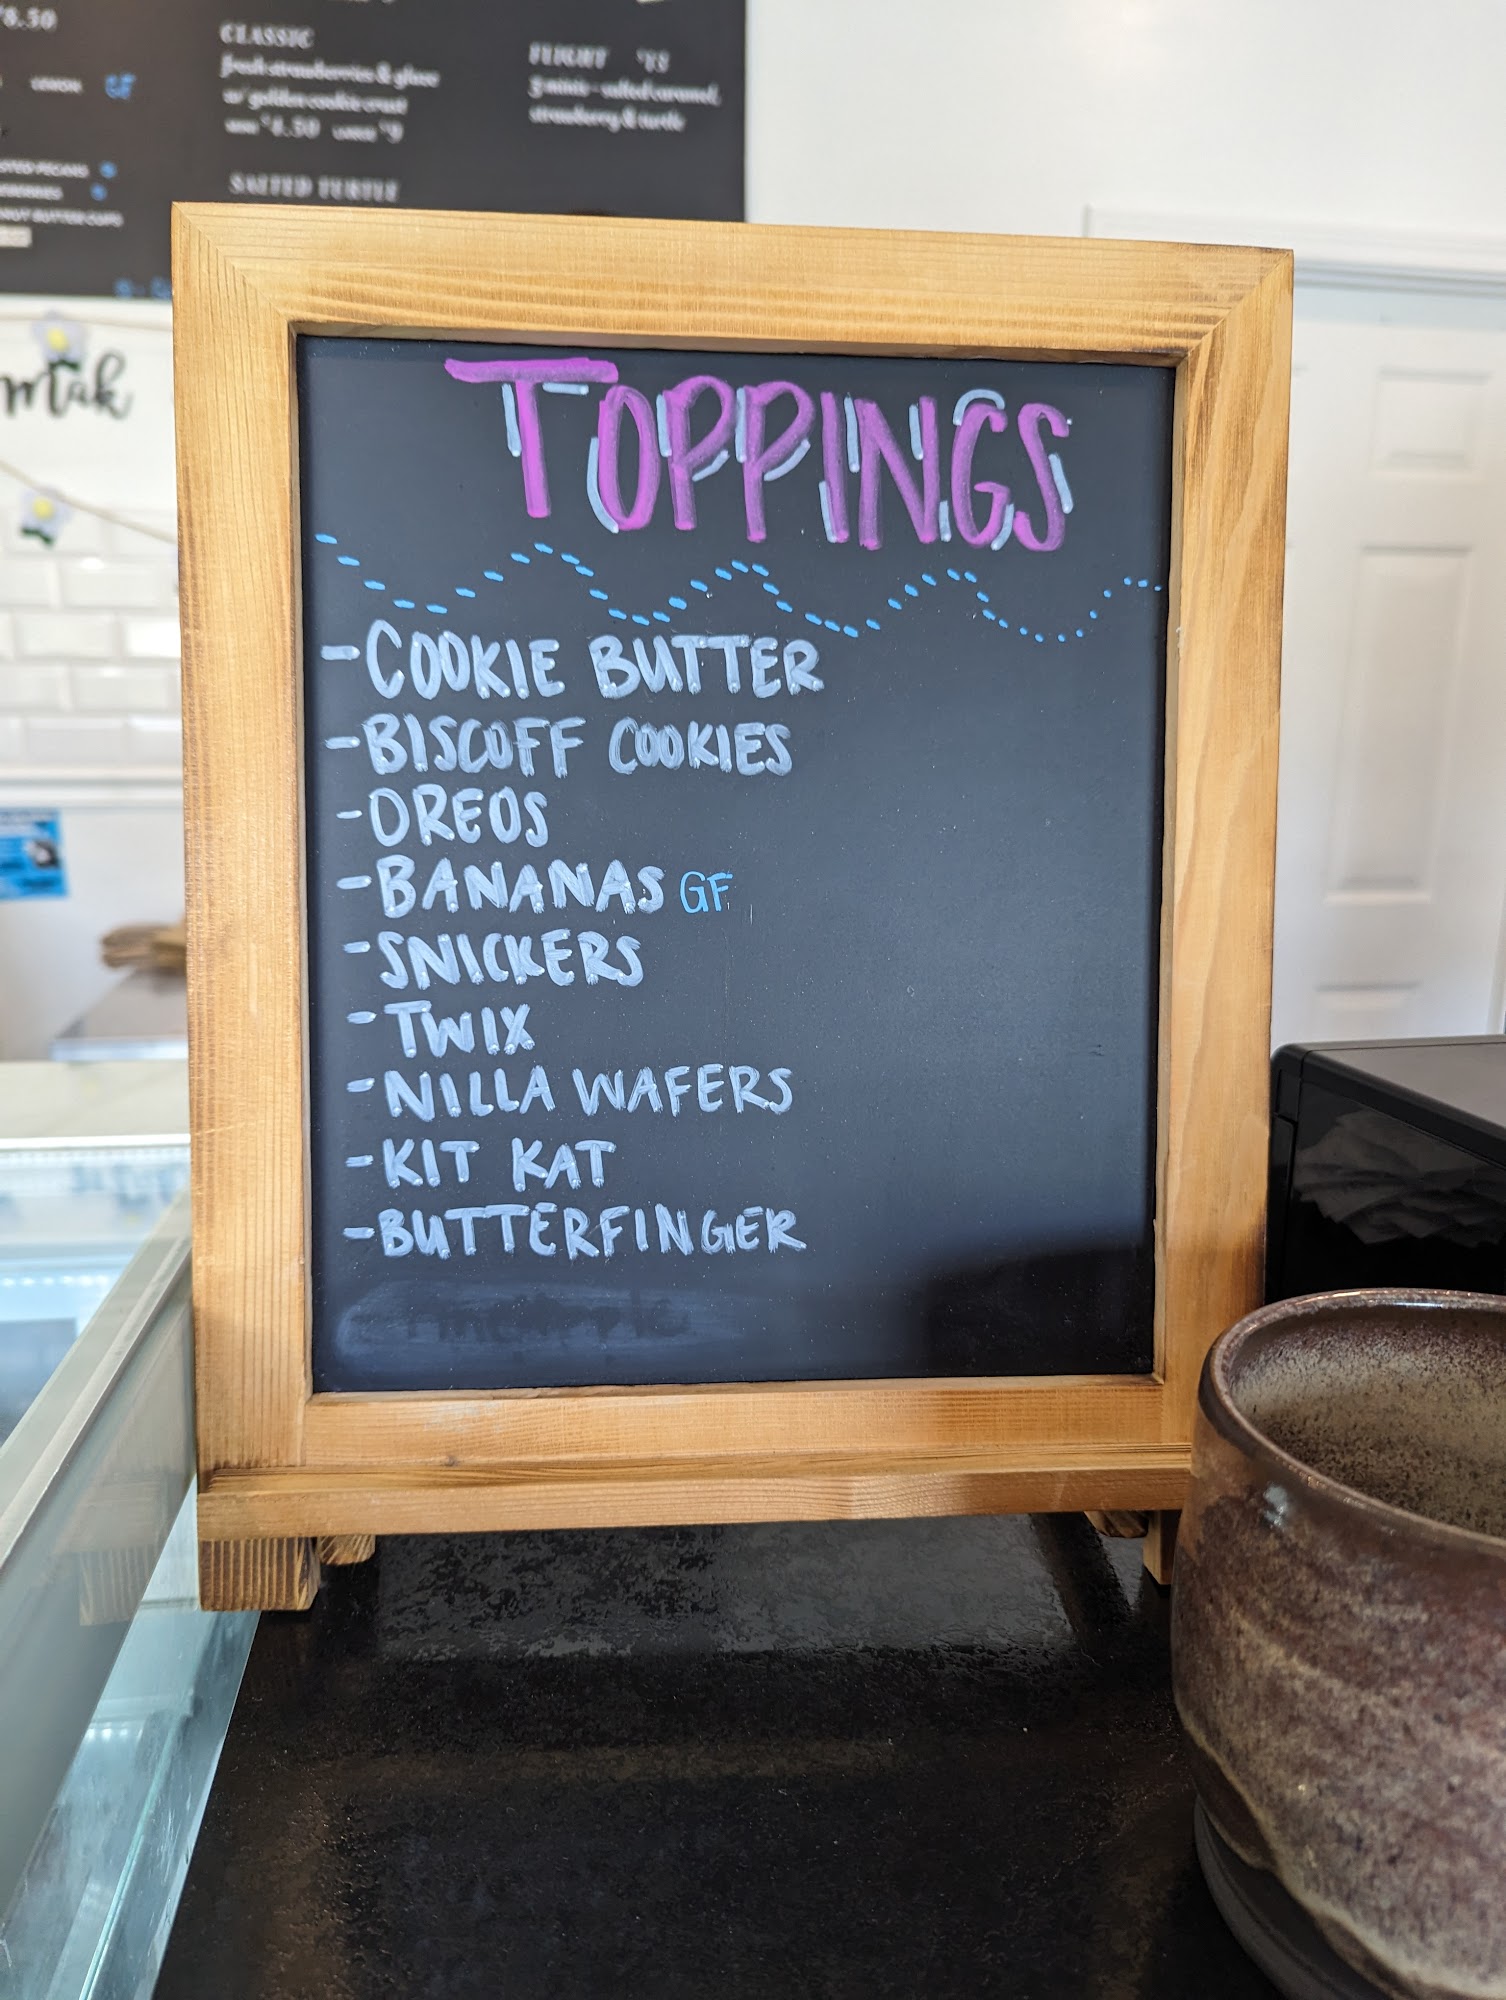 8.50
CLASSIC
fresh strawberries & glaze
w/ golden cookie crust
MINI $4.50 LARGE $9
SALTED TURTLE
FLIGHT $13
3 minis - salted caramel,
strawberry & turtle
LEMON GF
PECANS
NUT BUTTER CUPS
TOPPINGS
- COOKIE BUTTER
- BISCOFF COOKIES
- OREOS
- BANANAS GF
- SNICKERS
- TWIX
- NILLA WAFERS
- KIT KAT
- BUTTERFINGER